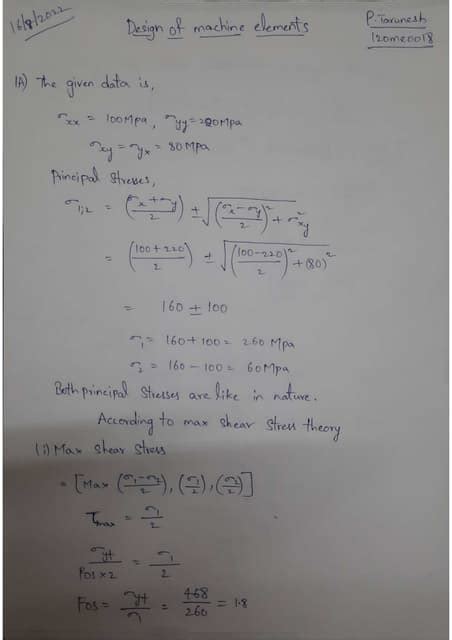 16/8/2022
Design of machine elements
P. Tarunesh
120me0018
1A) The given data is,
σxx = 100Mpa, σyy = 220Mpa
σxy = σyx = 80Mpa
Principal Stresses,
σ1,2 = ((σx + σy)/2) ± √(((σx - σy)/2)² + σ²xy)
= ((100 + 220)/2) ± √(((100 - 220)/2)² + (80)²)
= 160 ± 100
σ1 = 160 + 100 = 260 Mpa
σ2 = 160 - 100 = 60Mpa
Both principal Stresses are like in nature.
According to max shear stress theory
(i) Max shear stress
= [Max ((σ1 - σ2)/2), (σ1/2), (σ2/2)]
τmax = σ1/2
σyt/(Fos × 2) = σ1/2
Fos = σyt/σ1 = 468/260 = 1.8